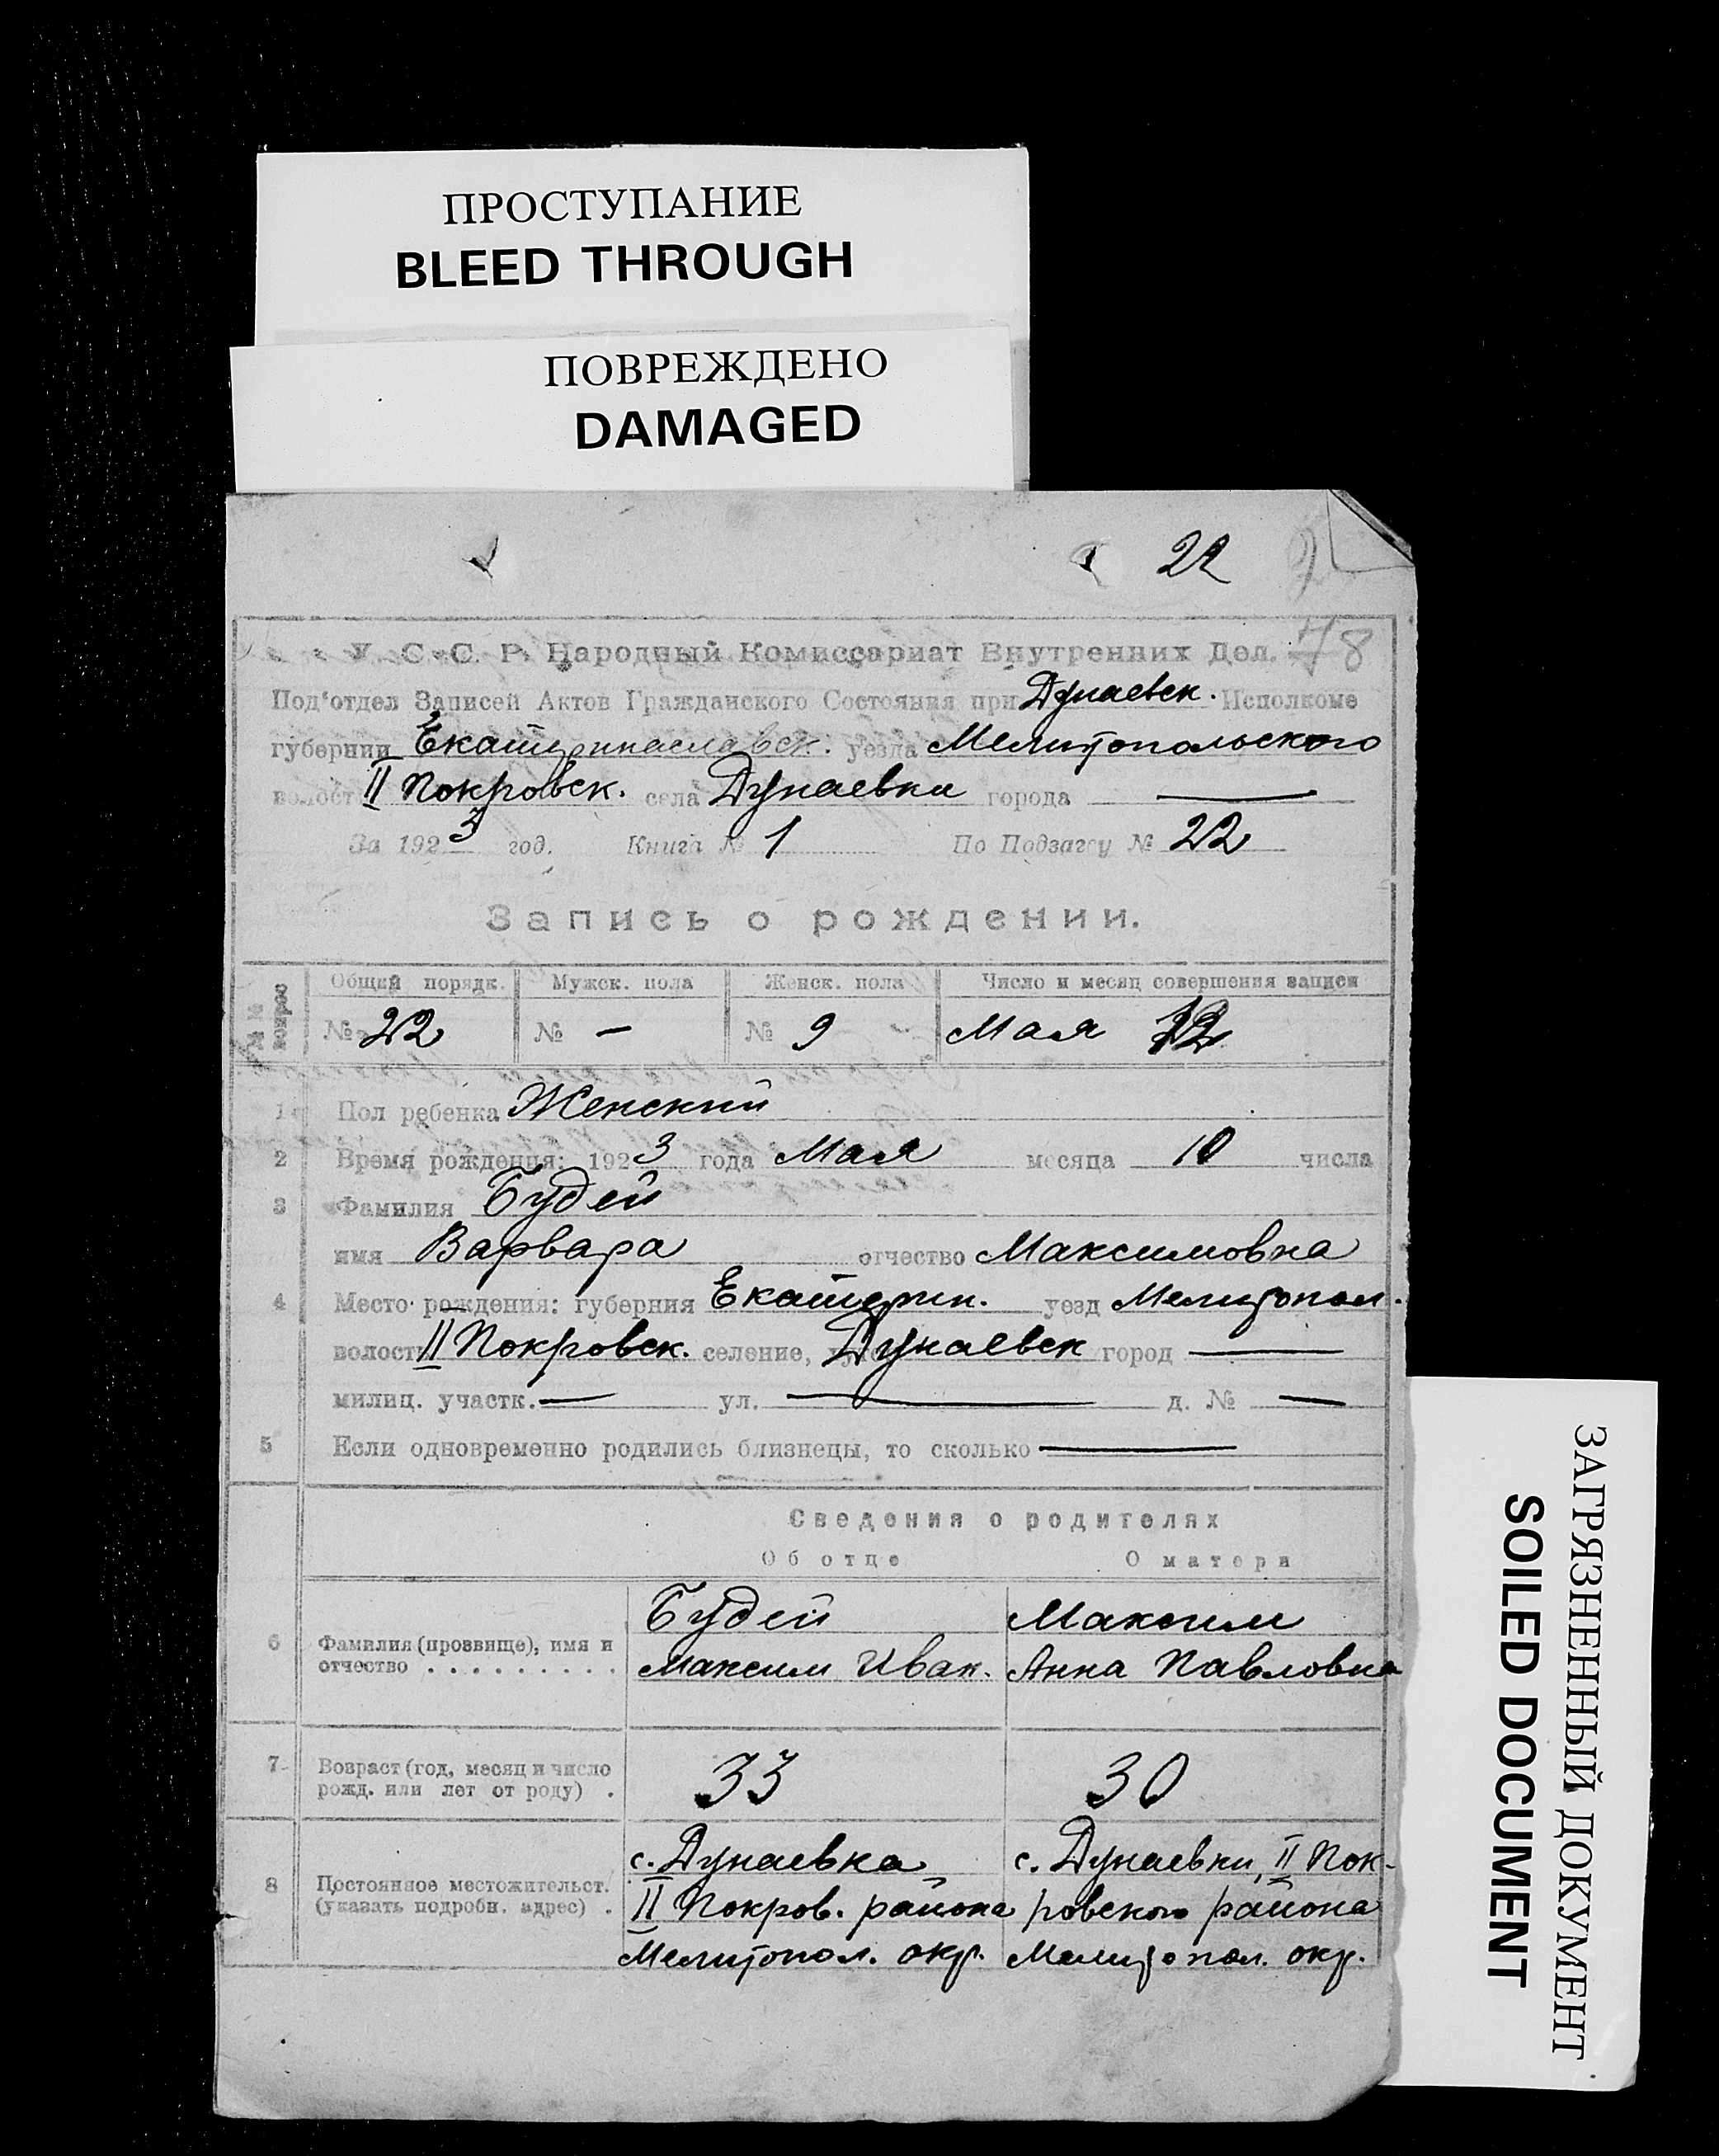 ПРОСТУПАНИЕ
BLEED THROUGH
ПОВРЕЖДЕНО
DAMAGED
22
78
У. С. С. Р. Народный Комиссариат Внутренних Дел.
Под'отдел Записей Актов Гражданского Состояния при Дунаевск. Исполкоме
губернии Екатеринославск. уезда Мелитопольского
волости II Покровск. села Дунаевки города —
За 1923 год. Книга № 1 По Подзагсу № 22
Запись о рождении.
№№ вопрос Общий порядк. Мужск. пола Женск. пола Число и месяц совершения записи
№ 22 № — № 9 Мая 12
1 Пол ребенка Женский
2 Время рождения: 1923 года Мая месяца 10 числа
3 Фамилия Будей
имя Варвара отчество Максимовна
4 Место рождения: губерния Екатерин. уезд Мелитопол.
волость II Покровск. селение, Дунаевск город —
милиц. участк. — ул. — д. № —
5 Если одновременно родились близнецы, то сколько —
Сведения о родителях
Об отце О матери
6 Фамилия (прозвище), имя и отчество . . . . . . . . .
Будей
Максим Иван.
Максим
Анна Павловна
7 Возраст (год, месяц и число рожд. или лет от роду) .
33
30
8 Постоянное местожительст. (указать подробн. адрес) .
с. Дунаевка
II Покров. района
Мелитопол. окр.
с. Дунаевки, II Пок-
ровского района
Мелитопол. окр.
ЗАГРЯЗНЕННЫЙ ДОКУМЕНТ
SOILED DOCUMENT